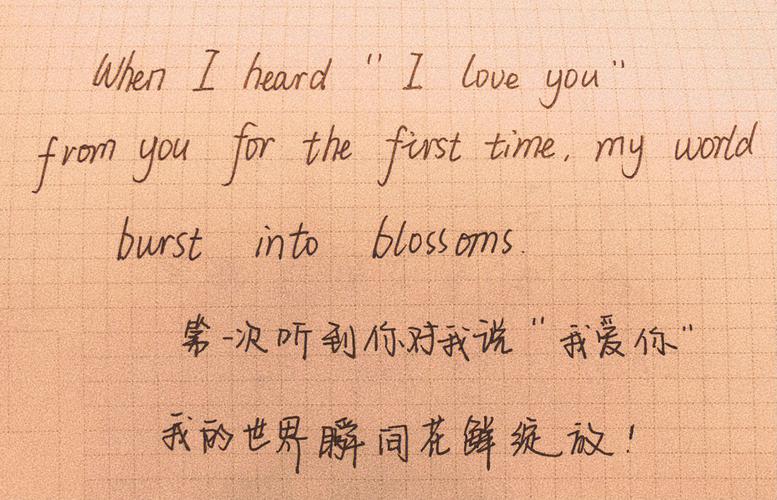 When I heard "I love you"
from you for the first time, my world
burst into blossoms.
第一次听到你对我说"我爱你"
我的世界瞬间花鲜绽放!